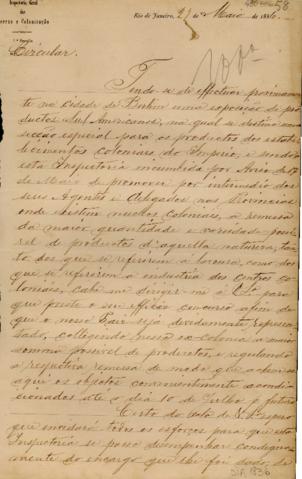 Inspectoria Geral
das
Terras e Colonisação
Rio de Janeiro, 21 de Maio de 1886.
Circular.
Tendo-se de effectuar proximamen-
te na cidade de Berlim uma exposição de pro-
ductos Sul Americanos, na qual se destina uma
secção especial para os productos dos estabe-
lecimentos coloniaes do Imperio, e sendo
esta Inspectoria incumbida por Aviso de 17
de Maio de promover por intermedio dos
seus Agentes e Delegados nas Provincias
onde existem nucleos coloniaes, a remessa
da maior quantidade e variedade possi-
vel de productos d'aquella natureza, tan-
to dos que se referirem á lavoura, como dos
que se referirem á industria dos centros co-
loniaes, cabe-me dirigir-me a V.S. para
que preste o seu efficaz concurso afim de
que o nosso Paiz seja devidamente represen-
tado, colligindo nessa ex-colonia a maior
somma possivel de productos, e regulando
a respectiva remessa de modo que a
aqui os objectos convenientemente acondi-
cionados até o dia 10 de Julho p. futuro
Certo do zelo de V.S. espero
que envidará todos os esforços para que esta
Inspectoria se possa desempenhar condigna-
mente do encargo que lhe foi dado, de